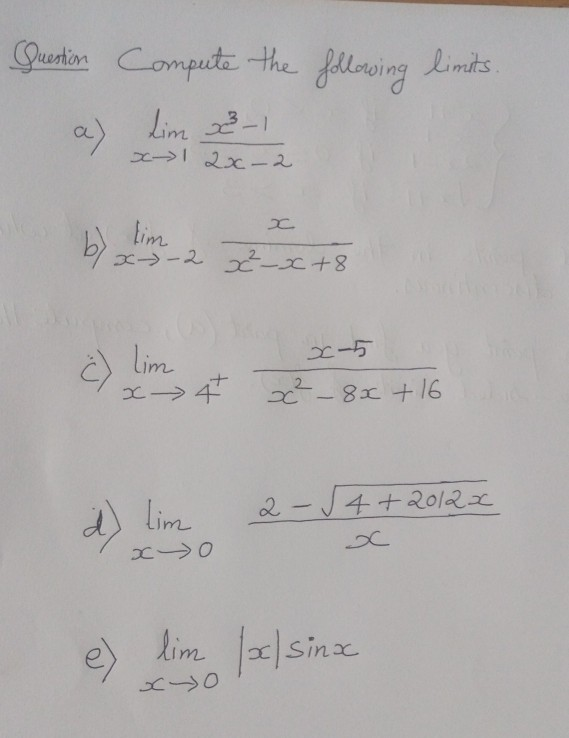 Question Compute the following limits.
a) lim x→1 x³-1 / 2x-2
b) lim x→-2 x / x²-x+8
c) lim x→4⁺ x-5 / x²-8x+16
d) lim x→0 2-√(4+2012x) / x
e) lim x→0 |x| sinx